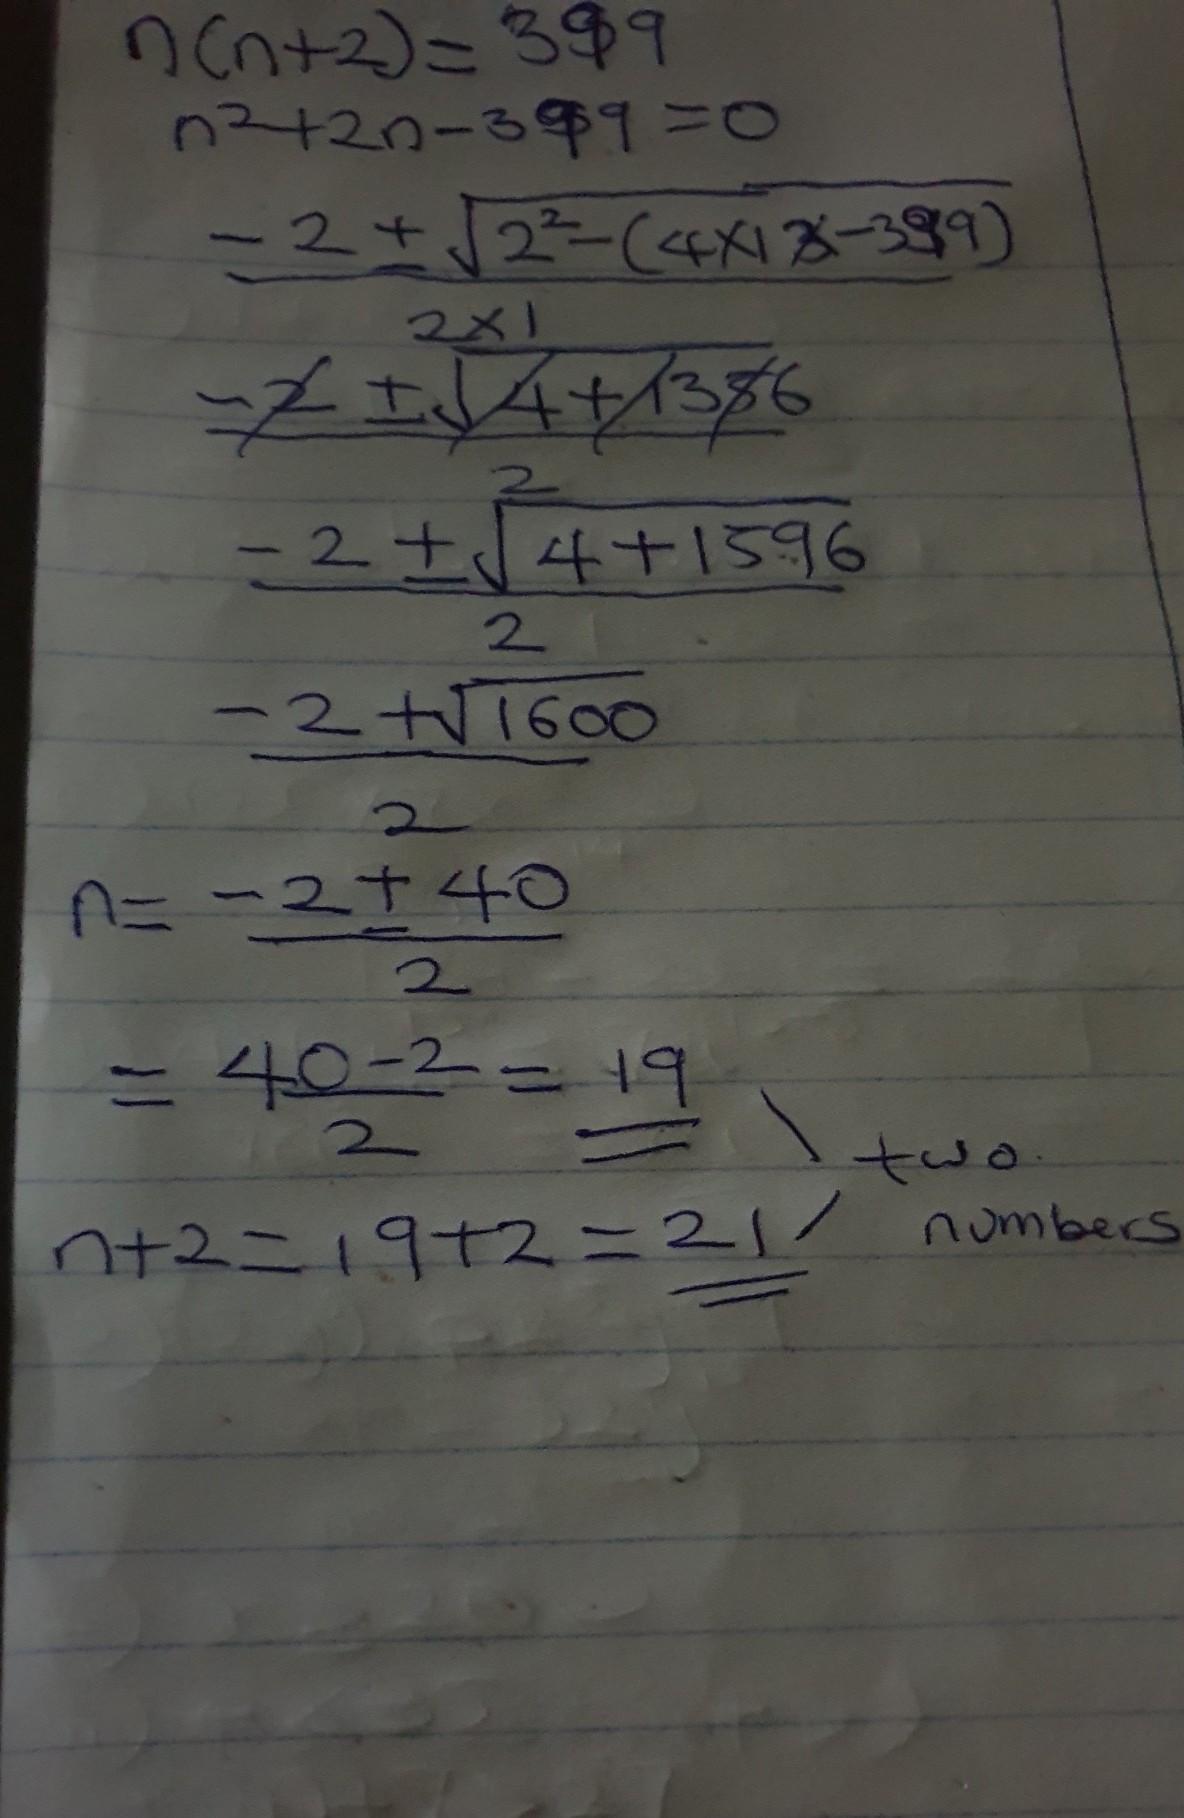 n(n+2)= 399
n²+2n-399=0
-2±√2²-(4×1×-399)
2×1
-2±√4+1386
2
-2±√4+1596
2
-2+√1600
2
n= -2±40
2
= 40-2 = 19
2
two
n+2=19+2=21
numbers